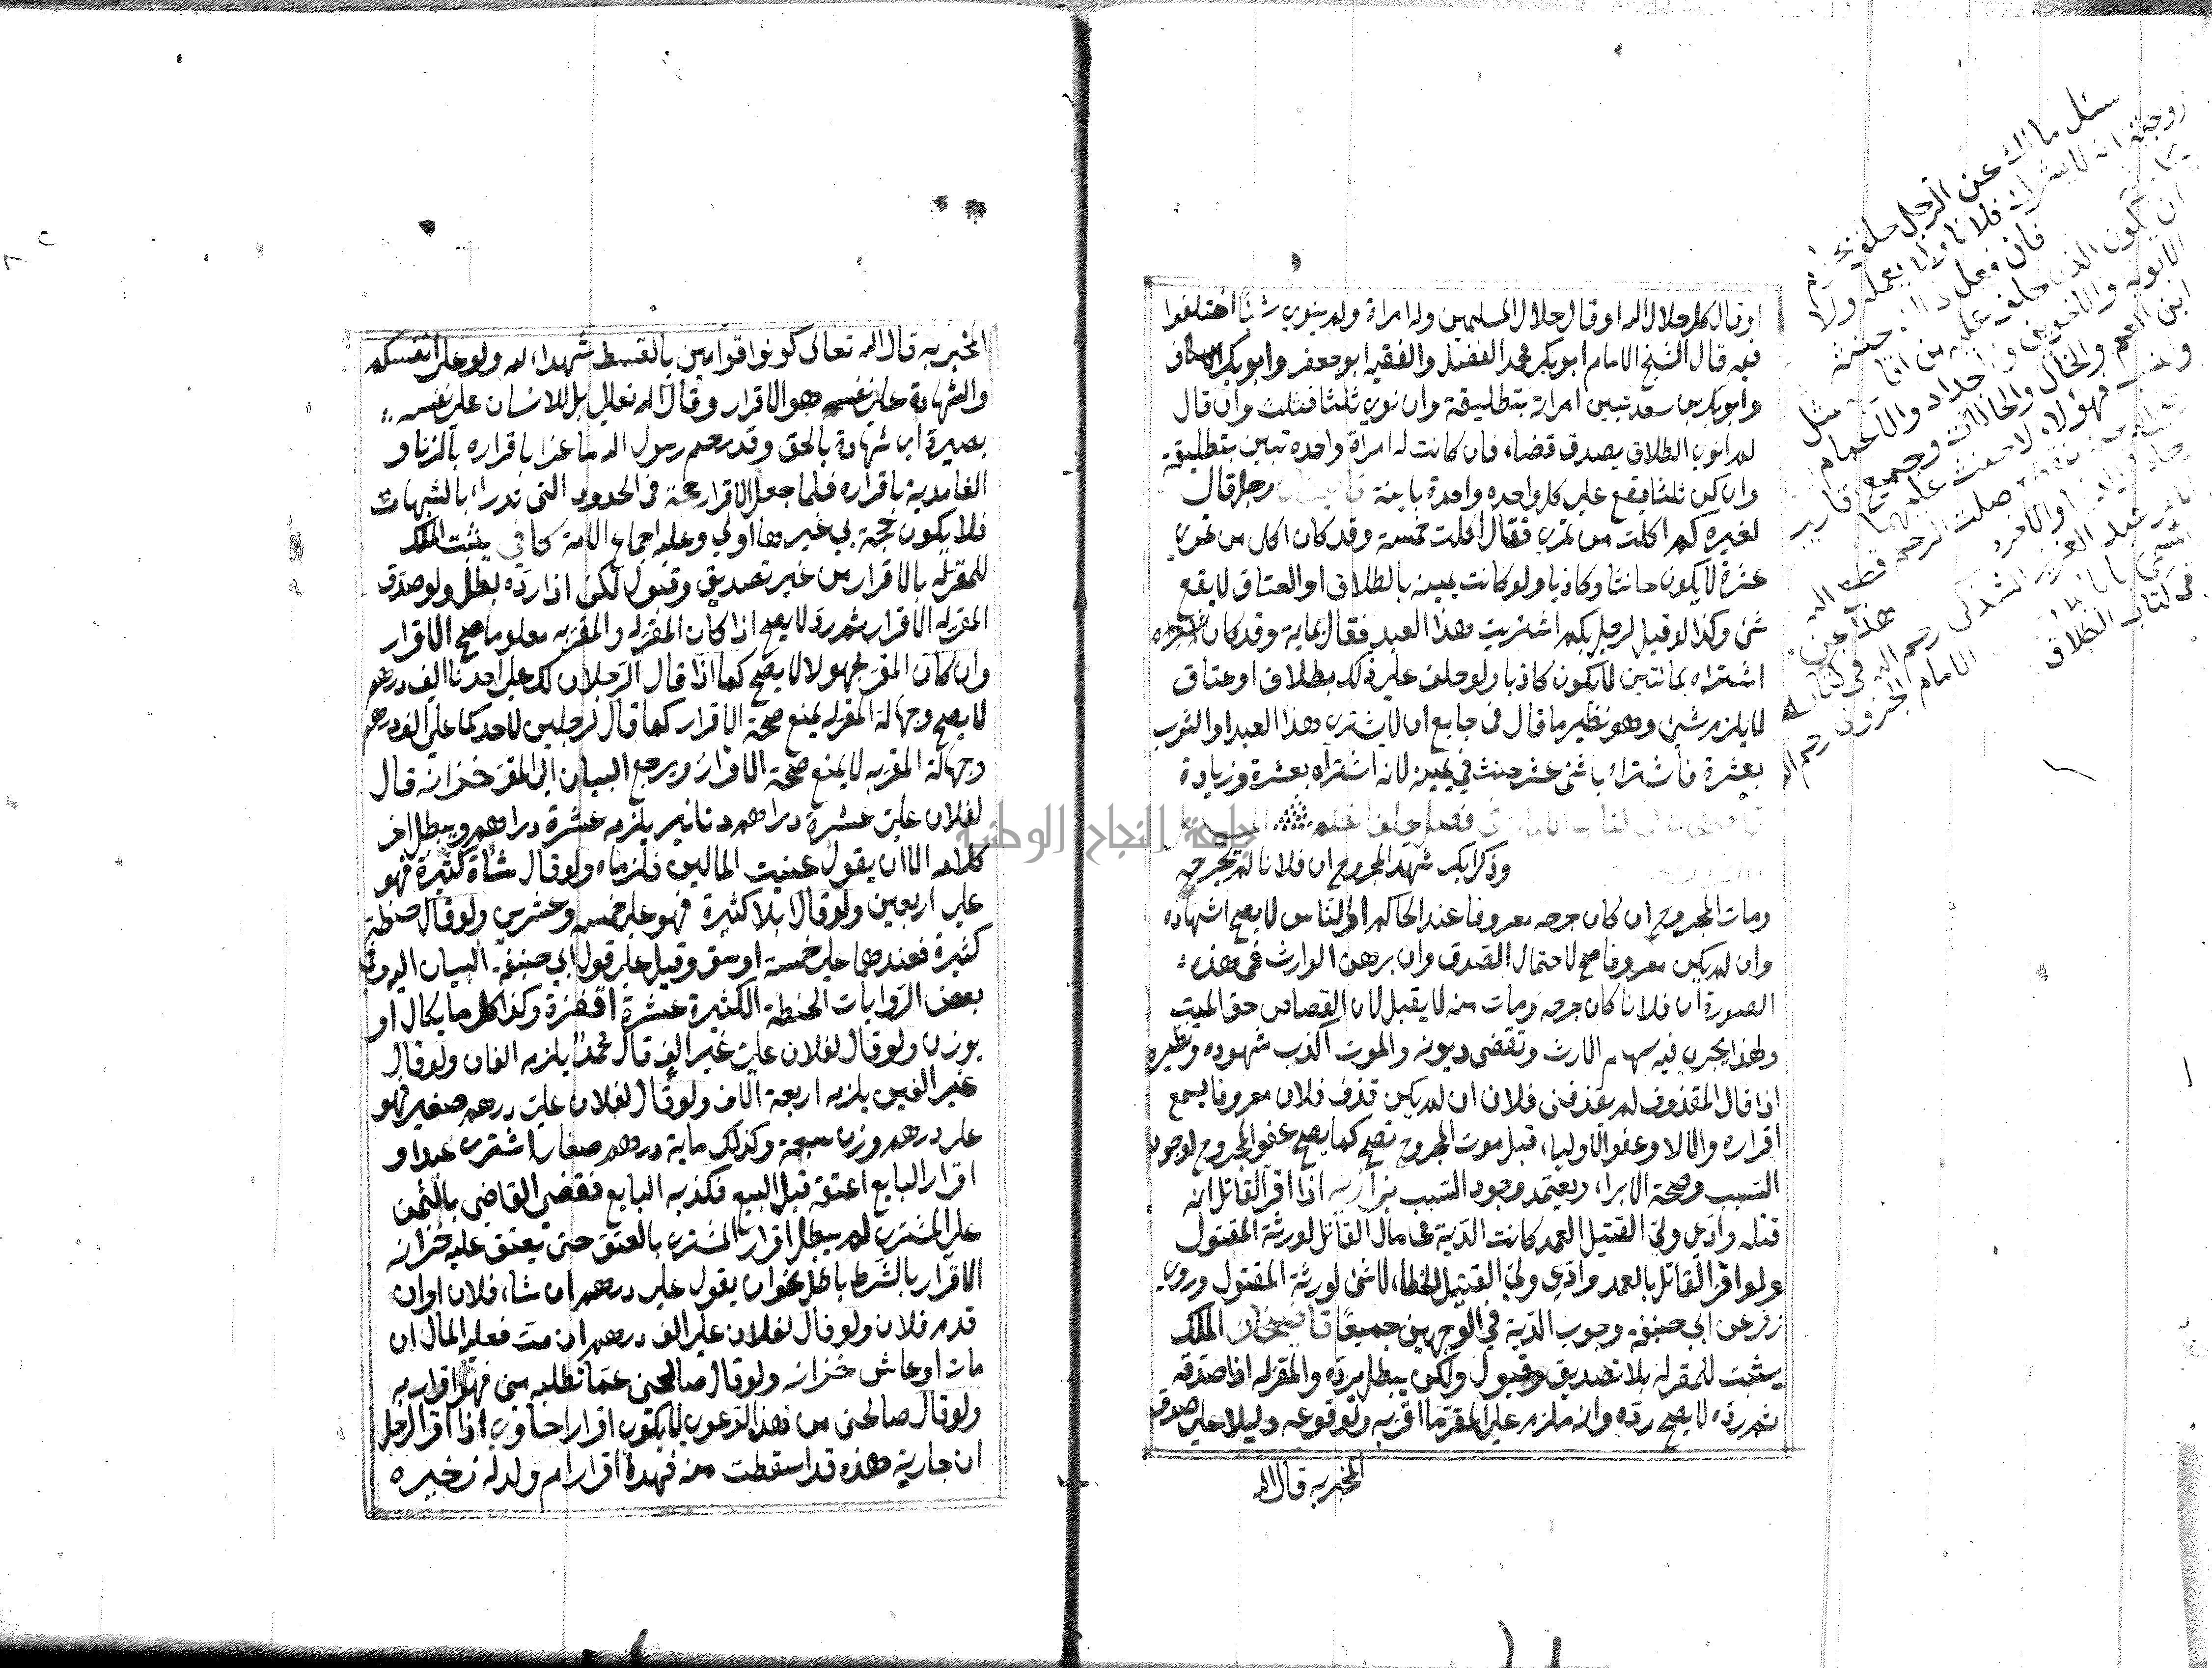 او قال كل حلال الله او قال حلال المسلمين وله امراة ولم ينوي شيئًا اختلفوا
فيه قال الشيخ الامام ابو بكر محمد الفضل والفقيه ابو جعفر وابو بكر الاسكاف
وابو بكر بن سعد تبين امراته بتطليقة وان نوي ثلثا فثلث وان قال
لم انوي الطلاق يصدق قضاء فان كانت له امراة واحده تبين بتطليقة
وان كن ثلثا يقع على كل واحده واحدة باينة رجل قال
لغيره كم اكلت من تمري فقال اكلت خمسة وقد كان اكل من تمري
عشرة لا يكون حانثا وكاذبا ولو كانت يمينه بالطلاق او العتاق لا يقع
شئ وكذا لو قيل لرجل بكم اشتريت هذا العبد فقال بماية وقد كان
اشتراه بمائتين لا يكون كاذبا ولو حلف على ذلك بطلاق او عتاق
لا يلزمه شئ وهو نظير ما قال في جامع ان لا يشتري هذا العبد او الثوب
بعشرة فاشتراه باثنى عشر حنث في يمينه لانه اشتراه بعشرة وزيادة
وذكر ابكر شهد المجروح ان فلانا لم تجرحه
ومات المجروح ان كان جرحه معروفا عند الحاكم او الناس لا يصح اشهاده
وان لم يكن معروفا صح لاحتمال الصدق وان برهن الوارث في هذه
الصورة ان فلانا كان جرحه ومات منه لا يقبل لان القصاص حق الميت
ولهذا يجري فيه سهام الارث وتقضى ديونه والموت اكذب شهوده ونظيره
اذا قال المقذوف لم يقذفنى فلان ان لم يكن قذف فلان معروفا يسمع
اقراره والا لا وعفو الاولياء قبل موت المجروح تصح كما يصح عفو المجروح لوجود
السبب وصحة الابراء ويعتمد وجود السبب بزازية اذا اقر القاتل انه
قتله وادعى ولي القتيل العمد كانت الدية في مال القاتل لورثة المقتول
ولو اقر القاتل بالعمد وادعى ولي القتيل الخطاء لا شئ لورثة المقتول وروي
زفر عن ابي حنيفة وجوب الدية في الوجهين جميعًا قاضيخان الملك
يثبت للمقر له بلا تصديق وقبول ولكن يبطل برده والمقر له اذا صدقه
ثم رده لا يصح رده وانه ملزم على المقر ما اقر به ولوقوعه دليلا على صدق
المخبر به قال الله
سئل مالك عن الرجل حلف
زوجته انه لا يشرك فلانا ولا يعمله ولا
فان فعل ذالك حنثة
يكون الذي حلف عليه من اقا مثل
الابوين والاخوين والاجداد والاعمام
ابن العم والخال والخالات وجميع اقارب
فهؤلاء لا حنث عليهما
صلت الرحم قطعه الله
عبد العزيز رحمه الله في كتابه
الامام الجزولى رحمه الله
في كتاب الطلاق
المخبر به قال الله تعالى كونوا قوامين بالقسط شهداء لله ولو على انفسكم
والشهادة على نفسه هو الاقرار وقال الله تعالى بل الانسان على نفسه
بصيرة اي شهادة بالحق وقد رجم رسول الله ماعزا باقراره بالزنا و
الغامدية باقراره فلما جعل الاقرار حجة في الحدود التى تدراء بالشبهات
فلا يكون حجة في غيرها اولي وعليه اجماع الامة كافي يثبت الملك
للمقر له بالاقرار من غير تصديق وقبول لكن اذا رده بطل ولو صدق
المقر له الاقرار ثم رد لا يصح اذا كان المقر له والمقر به معلوما صح الاقرار
وان كان المقر مجهولا لا يصح كما اذا قال الرجلان لك على احدنا الف درهم
لا يصح وجهالة المقر له يمنع صحة الاقرار كما قال لرجلين لاحدكما علي الف درهم
وجهالة المقر به لا يمنع صحة الاقرار ويرجع البيان الى المقر خزانه قال
لفلان على عشرة دراهم دنانير يلزمه عشرة دراهم ويبطل اخر
كلامه الا ان يقول عنيت المالين فلزماه ولو قال شاة كثيرة فهو
على اربعين ولو قال ابلا كثيرة فهو على خمسه وعشرين ولو قال حنطة
كثيرة فعندهما على خمسة اوسق وقيل على قول ابي حنيفة البيان اليه وفي
بعض الروايات الحنطة الكثيرة عشرة اقفزة وكذا كل ما يكال او
يوزن ولو قال لفلان على غير الف قال محمد يلزمه الفان ولو قال
غير الفين يلزمه اربعة الاف ولو قال لفلان على درهم صغير فهو
على درهم وزن سبعة وكذلك ماية درهم صغار اشترى عبدا و
اقر ان البايع اعتقه قبل البيع فكذبه البايع فقضى القاضي بالثمن
على المشتري لم يبطل اقرار المشترى بالعتق حتى يعتق عليه خزانه
الاقرار بالشرط باطل نحو ان يقول على درهم ان شاء فلان او ان
قدم فلان ولو قال لفلان على الف درهم ان مت فعليه المال ان
مات او عاش خزانه ولو قال صالحنى عما تطلبه منى فهو اقرار به
ولو قال صالحنى من هذا الدعوى لا يكون اقرارا حاوي اذا اقر الرجل
ان جارية هذه قد اسقطت منه فهذا اقرار ام ولد له ذخيره
جامعة النجاح الوطنية